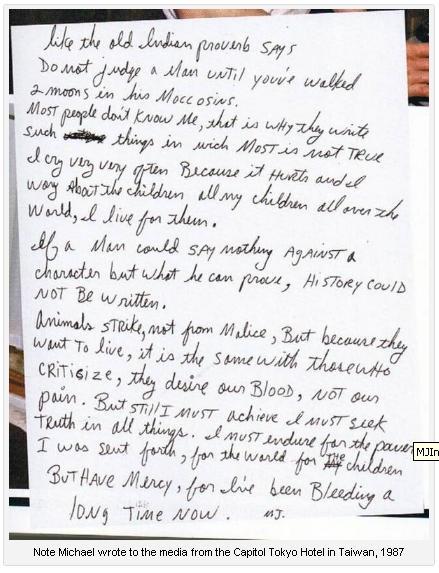 like the old Indian proverb SAYS
Do not judge a Man until you've walked
2 moons in his Moccosins.
MOST people don't Know Me, that is WHY they write
such things in wich MOST is not TRUE
I cry very very often Because it Hurts and I
wory About the children all my children all over the
World, I live for them.
If a Man could SAY nothing AGAINST a
character but what he can prove, HISTORY COULD
NOT BE written.
Animals STRIKE, not from Malice, But because they
want To live, it is the same with those WHO
CRITISIZE, they desire our BLOOD, NOT our
pain. But STill I MUST achieve I MUST seek
Truth in all things. I must endure for the power
I was sent forth, for the world for the children
BUT HAVE MERCY, for I've been Bleeding a
long Time Now. MJ.
MJIn
Note Michael wrote to the media from the Capitol Tokyo Hotel in Taiwan, 1987